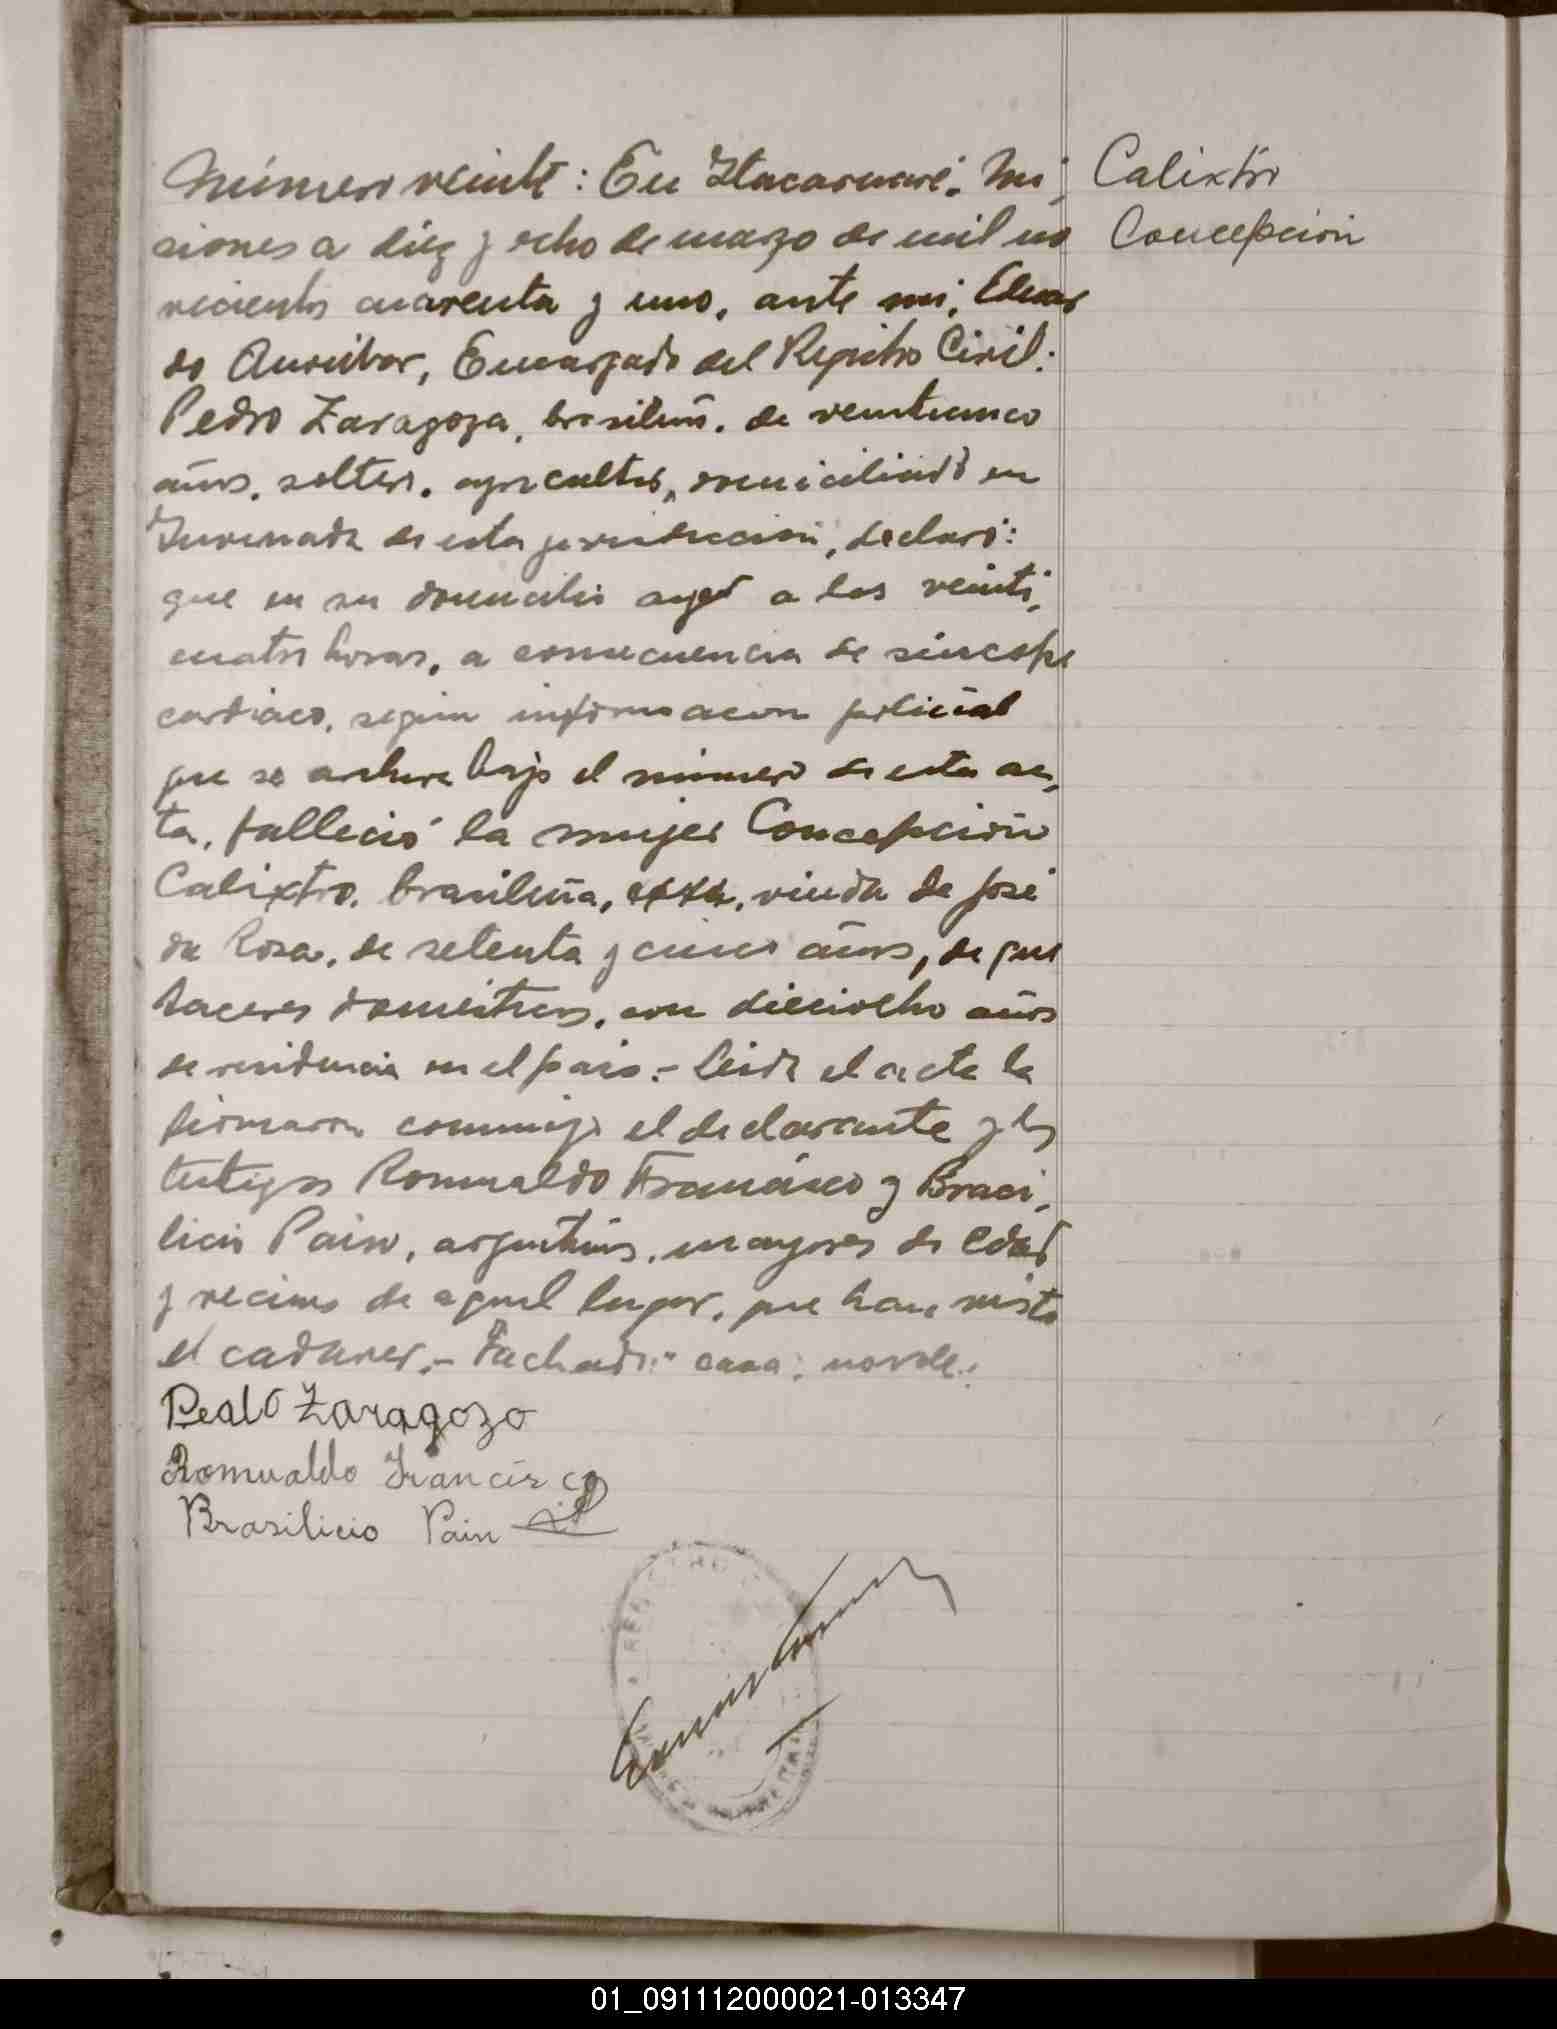 Número veinte: En Itacaruaré, Mi,
siones a diez y ocho de marzo de mil no
vecientos cuarenta y uno, ante mi, Eduar
do Aureibar, Encargado del Registro Civil:
Pedro Zaragoza, brasileño, de veinticinco
años, soltero, agricultor, domiciliado en
de esta jurisdiccion, declaró:
que en su domicilio ayer a las veinti,
cuatro horas, a consecuencia de sincope
cardiaco, segun informacion policial
que se archiva bajo el número de esta ac,
ta, falleció la mujer Concepción
Calixtro, brasileña, viuda de José
da Rosa, de setenta y cinco años, de que
haceres domesticos, con dieciocho años
de residencia en el pais.- Leida el acta la
firmaron conmigo el declarante y los
testigos Romualdo Francisco y Braci,
licio Pain, argentinos, mayores de edad
y vecinos de aquel lugar, que han visto
el cadaver.- Tachado:" casa: no vale:
Pedlo Zaragozo
Romualdo Francisco
Brasilicio Pain
Calixtro
Concepción
01_091112000021-013347